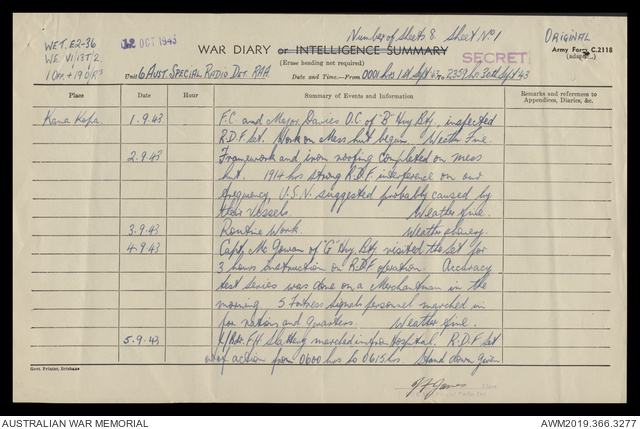 Number of Sheets 8. Sheet No 1
WET. E2-36
WE VI/13T/2
1 Off + 19 O/RS
12 OCT 1943
ORIGINAL
WAR DIARY or INTELLIGENCE SUMMARY
Army Form C.2118
(adapted)
(Erase heading not required)
SECRET
Unit 6 AUST. SPECIAL RADIO DET. RAA.
Date and Time.—From 0001 hrs 1st Sept 43 to 2359 hrs 30th Sept 43
Place Date Hour Summary of Events and Information Remarks and references to Appendices, Diaries, &c.
Kana Kopa. 1.9.43 F.C. and Major Davies O.C. of "B" Hvy Bty. inspected
R.D.F. Set. Work on Mess hut begun. Weather Fine.
2.9.43 Framework and iron roofing completed on mess
hut. 1914 hrs strong R.D.F. interference on our
frequency, U.S.N. suggested probably caused by
their vessels. Weather fine.
3.9.43 Routine Work. Weather showery.
4.9.43 Capt. McGowan of "G" Hvy. Bty. visited the set for
3 hours instruction on R.D.F. operation. Accuracy
test series was done on a Merchantman in the
morning 5 Fortress Signals personnel marched in
for rations and quarters. Weather fine.
5.9.43 L/Bdr. F.H. Slattery marched in from Hospital. R.D.F. Set
out of action from 0600 hrs to 0615 hrs. Stand down given
Govt. Printer, Brisbane
Lieut
AUSTRALIAN WAR MEMORIAL
AWM2019.366.3277